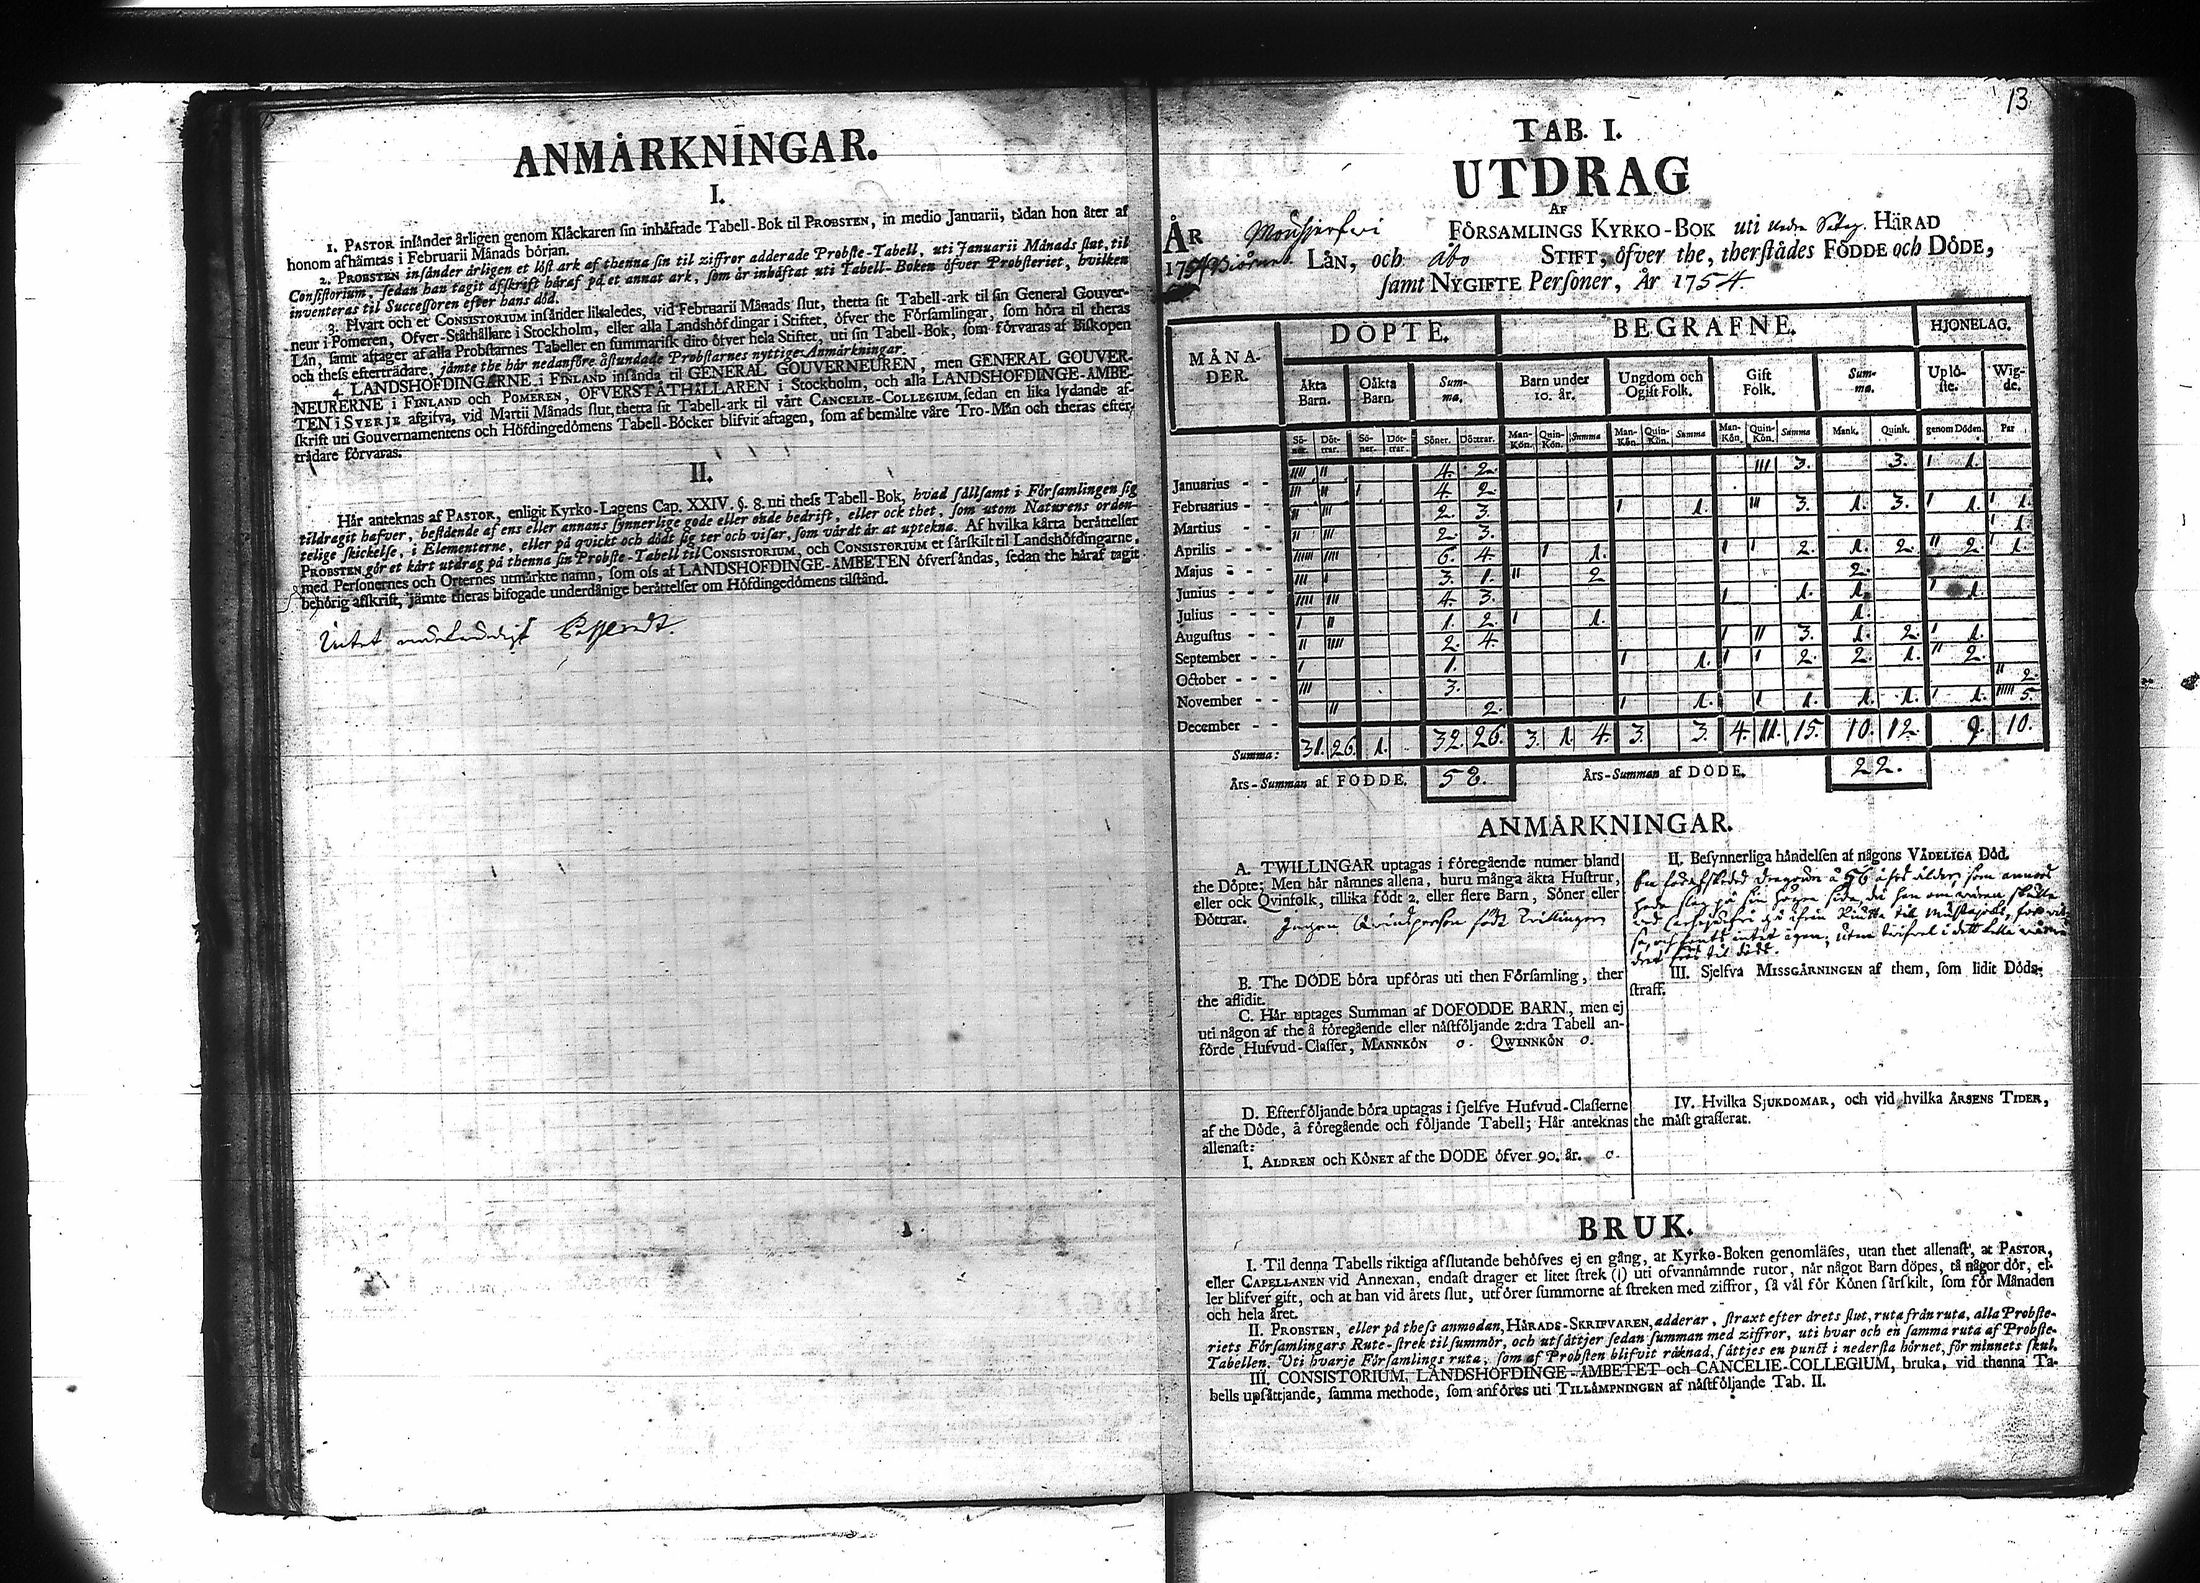 ANMÅRKNINGAR.
I.
1. PASTOR insånder årligen genom Klåckaren sin inhåftade Tabell-Bok til PROBSTEN, in medio Januarii, tådan hon åter af
honom afhämtas i Februarii Månads början.
2. PROBSTEN insånder årligen et löst ark af thenna sin til ziffror adderade Probste-Tabell, uti Januarii Månads slut, til
Consistorium, sedan han tagit afskrift håraf på et annat ark, som år inbåftat uti Tabell-Boken öfver Probsteriet, hvilken
inventeras til Successoren efter hans död.
3. Hvart och et CONSISTORIUM insånder likaledes, vid Februarii Månads slut, thetta sit Tabell-ark til sin General Gouver-
neur i Pomeren, Ofver-Ståthållare i Stockholm, eller alla Landshöfdingar i Stiftet, öfver the Församlingar, som höra til theras
Lån, samt aftager af alla Probstarnes Tabeller en summarisk dito öfver hela Stiftet, uti sin Tabell-Bok, som förvaras af Biskopen
och thess eftertrådare, jämte the hår nedanföre åstundade Probstarnes nyttige Anmårkningar.
4. LANDSHÖFDINGARNE i FINLAND insånda til GENERAL GOUVERNEUREN, men GENERAL GOUVER-
NEURERNE i FINLAND och POMEREN, ÖFVERSTÅTHÅLLAREN i Stockholm, och alla LANDSHÖFDINGE-ÅMBE-
TEN i SVERJE afgifva, vid Martii Månads slut, thetta sit Tabell-ark til vårt CANCELIE-COLLEGIUM, sedan en lika lydande af-
skrift uti Gouvernamentens och Höfdingedömens Tabell-Böcker blifvit aftagen, som af bemälte våre Tro-Mån och theras efter-
trådare förvaras.
II.
Hår anteknas af PASTOR, enligit Kyrko-Lagens Cap. XXIV. §. 8. uti thess Tabell-Bok, hvad sållsamt i Församlingen sig
tildragit hafver, bestående af ens eller annans synnerlige gode eller onde bedrift, eller ock thet, som utom Naturens orden-
telige skickelse, i Elementerne, eller på qvickt och dödt sig ter och visar, som vårdt år at uptekna. Af hvilka kårta beråttelser
PROBSTEN gör et kårt utdrag på thenna sin Probste-Tabell til CONSISTORIUM, och CONSISTORIUM et sårskilt til Landshöfdingarne,
med Personernes och Orternes utmårkte namn, som oss af LANDSHÖFDINGE-ÅMBETEN öfversåndas, sedan the håraf tagit
behörig afskrift, jämte theras bifogade underdånige beråttelser om Höfdingedömens tilstånd.
Intet
13
TAB. I.
UTDRAG
AF
ÅR FÖRSAMLINGS KYRKO-BOK uti HÄRAD
1754 LÅN, och Åbo STIFT, öfver the, therstådes FÖDDE och DÖDE,
samt NYGIFTE Personer, År 1754.
MÅNA-DER. DÖPTE. BEGRAFNE. HJONELAG.
Äkta Barn. Oåkta Barn. Sum-ma. Barn under 10. år. Ungdom och Ogift Folk. Gift Folk. Sum-ma. Uplö-ste. Wig-de.
Sö-ner. Döt-trar. Sö-ner. Döt-trar. Söner. Döttrar. Man-Kön. Quin-Kön. Summa Man-Kön. Quin-Kön. Summa Man-Kön. Quin-Kön. Summa Mank. Quink. genom Döden. Par
Januarius - - IIII II 4. 2. III 3. 3. I 1.
Februarius - - III II I 4. 2.
Martius - - II III 2. 3. I 1. III 3. 1. 3. I 1. I 1.
Aprilis - - - II III 2. 3. I 1.
Majus - - - IIIIII IIII 6. 4. I 1. I I 2. 1. 2. II 2. I 1.
Junius - - - III I 3. 1. II 2 2.
Julius - - - IIII III 4. 3. I 1. 1. I 1.
Augustus - - I II 1. 2. I 1. 1.
September - - II IIII 2. 4. I II 3. 1. 2. I 1.
October - - - I 1. I 1. I I 2 2. 1. II 2.
November - - III 3. II 2.
December - - II 2. I 1. I I 1. 1. 1. I 1. IIIII 5.
Summa: 31. 26. 1. 32. 26. 3. 1. 4. 3. 3. 4. 11. 15. 10. 12. 9. 10.
Års-Summan af FÖDDE. 58. Års-Summan af DÖDE. 22.
ANMÅRKNINGAR.
A. TWILLINGAR uptagas i föregående numer bland
the Döpte; Men hår nåmnes allena, huru många äkta Hustrur,
eller ock Qvinfolk, tillika födt 2. eller flere Barn, Söner eller
Döttrar. Ingen Qvinsperson födt tvillingar
B. The DÖDE böra upföras uti then Församling, ther
the aflidit.
C. Hår uptages Summan af DÖFÖDDE BARN, men ej
uti någon af the å föregående eller nåstföljande 2:dra Tabell an-
förde Hufvud-Classer, MANNKÖN 0. QWINNKÖN 0.
D. Efterföljande böra uptagas i sjelfve Hufvud-Classerne
af the Döde, å föregående och följande Tabell; Hår anteknas
allenast:
I. ÅLDREN och KÖNET af the DÖDE öfver 90. år. 0.
II. Besynnerliga håndelsen af någons VÅDELIGA Död.
III. Sjelfva MISSGÅRNINGEN af them, som lidit Döds-
straff.
IV. Hvilka SJUKDOMAR, och vid hvilka ÅRSENS TIDER,
the måst grasserat.
BRUK.
I. Til denna Tabells riktiga afslutande behöfves ej en gång, at Kyrko-Boken genomläses, utan thet allenast, at PASTOR,
eller CAPELLANEN vid Annexan, endast drager et litet strek (I) uti ofvannåmnde rutor, når något Barn döpes, tå någor dör, el-
ler blifver gift, och at han vid årets slut, utförer summorne af streken med ziffror, så vål för Könen sårskilt, som för Månaden
och hela året.
II. PROBSTEN, eller på thess anmodan, HÅRADS-SKRIFVAREN, adderar, straxt efter årets slut, ruta från ruta, alla Probste-
riets Församlingars Rute-strek til summor, och utsåttjer sedan summan med ziffror, uti hvar och en samma ruta af Probste-
Tabellen. Uti hvarje Församlings ruta, som af Probsten blifvit råknad, såttjes en punct i nedersta hörnet, för minnets skul.
III. CONSISTORIUM, LANDSHÖFDINGE-ÅMBETET och CANCELIE-COLLEGIUM, bruka, vid thenna Ta-
bells upsåttjande, samma methode, som anföres uti TILLÅMPNINGEN af nåstföljande Tab. II.